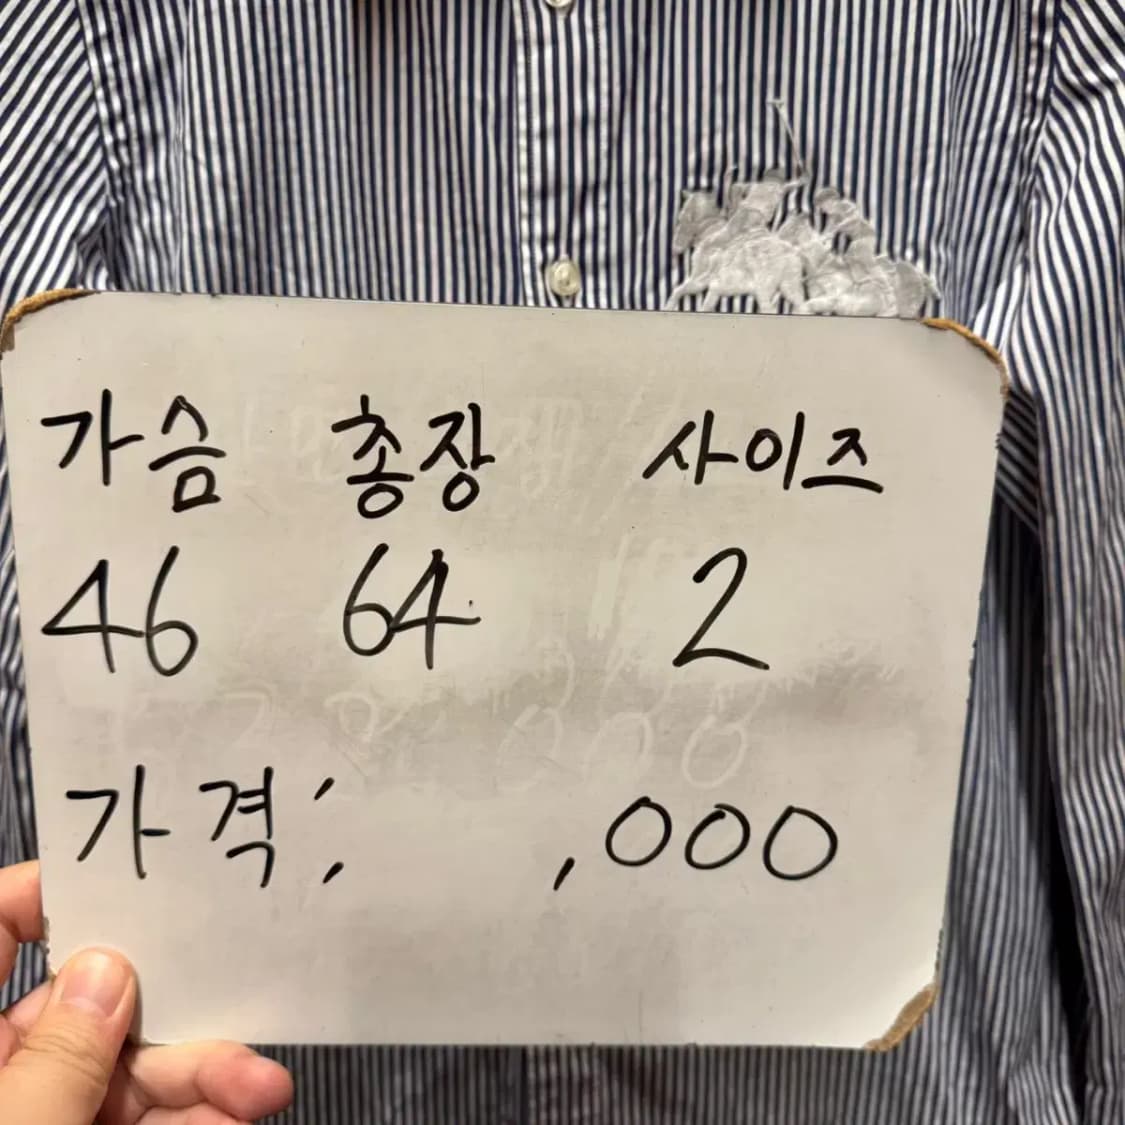 가슴 총장 사이즈
46 64 2
가격: ,000